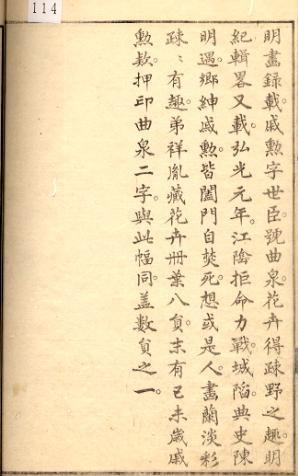 114
明畫錄載戚勳字世臣號曲泉花卉得疎野之趣明
紀輯畧又載弘光元年江陰拒命力戰城陷典史陳
明遇鄉紳戚勳皆闔門自焚死想或是人畫蘭淡彩
疎〻有趣弟祥胤藏花卉冊葉八頁末有己未歲戚
勳款押印曲泉二字與此幅同盖數頁之一